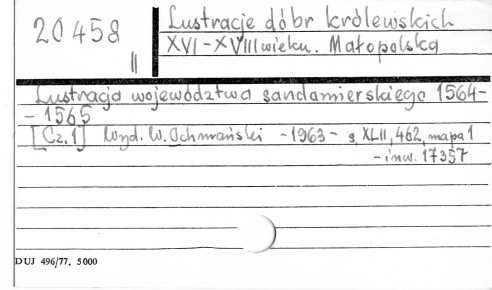 20458
II
Lustracje dóbr królewskich
XVI-XVIII wieku. Małopolska
Lustracja województwa sandomierskiego 1564-
- 1565
[Cz. 1] Wyd. W. Ochmański - 1963 - s. XLII, 462, mapa 1
- inw. 17357
DUJ 496/77. 5000